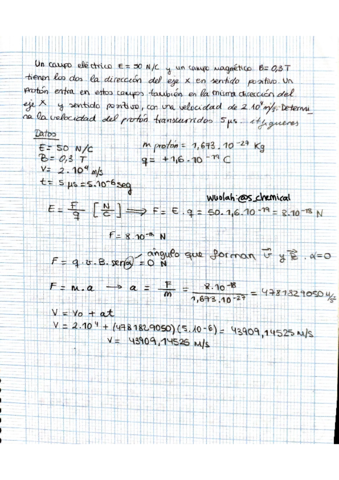 Un campo eléctrico E = 50 N/C y un campo magnético B = 0,3 T
tienen los dos la dirección del eje X en sentido positivo. Un
protón entra en estos campos también en la misma dirección del
eje X y sentido positivo, con una velocidad de 2·10⁴ m/s. Determi
na la velocidad del protón transcurridos 5 μs.
Datos
E = 50 N/C
m protón = 1,673·10⁻²⁷ Kg
B = 0,3 T
q = +1,6·10⁻¹⁹ C
V = 2·10⁴ m/s
t = 5 μs = 5·10⁻⁶ seg
wuolah: @s_chemical
E = F/q [N/C] ⟹ F = E·q = 50·1,6·10⁻¹⁹ = 8·10⁻¹⁸ N
F = 8·10⁻¹⁸ N
ángulo que forman V y B. α=0
F = q·v·B·senα = 0 N
F = m·a → a = F/m = 8·10⁻¹⁸/1,673·10⁻²⁷ = 4781829050 m/s²
V = Vo + at
V = 2·10⁴ + (4781829050)(5·10⁻⁶) = 43909,14525 m/s
V = 43909,14525 m/s